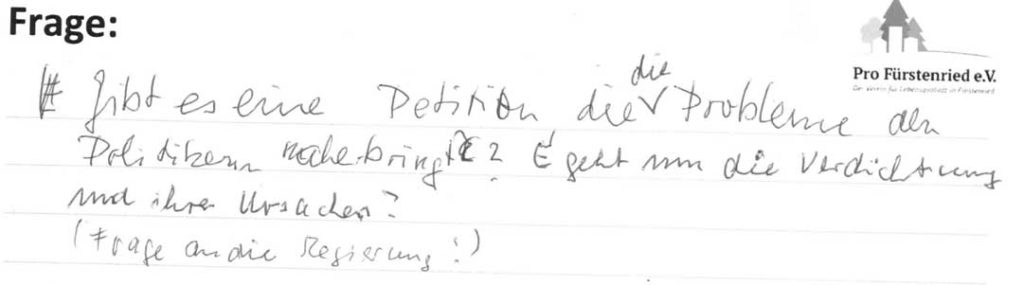 Frage:
Pro Fürstenried e.V.
Der Verein für Lebensqualität in Fürstenried
# Gibt es eine Petition die die Probleme den
Politikern näherbringt? E geht um die Verdichtung
und ihre Ursachen?
(Frage an die Regierung!)